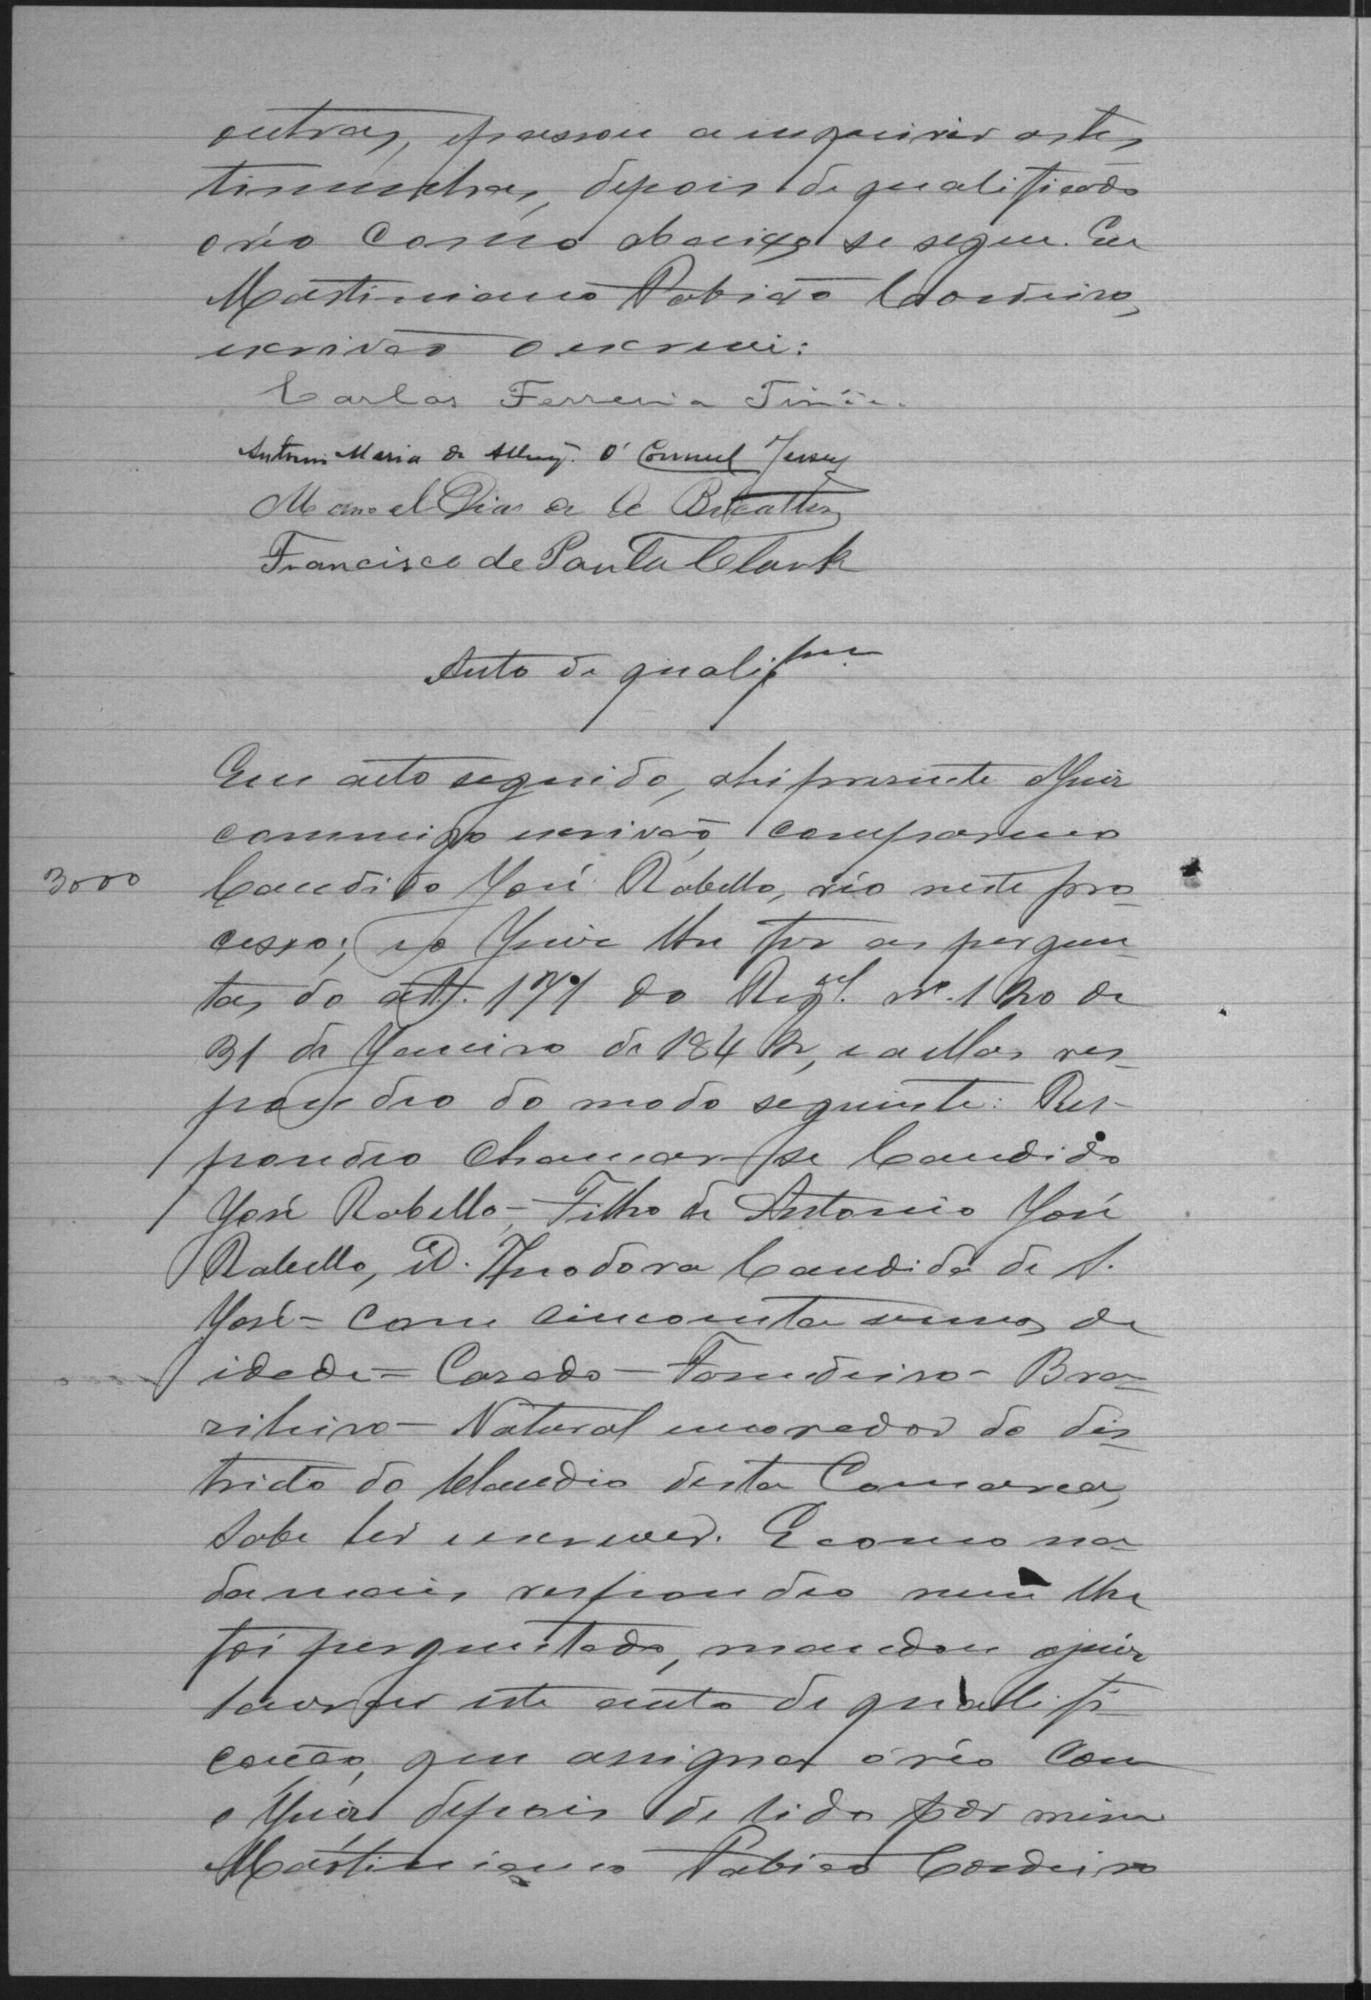 outras, e passou a inquirir as tes
timunhas, depois de qualificado
o réo como abaixo se segue. Eu
Martiniano Fabião Cordeiro,
escrivão o escrevi:
Carlos Ferreira
Antonio Maria de O' Connel Jersey
Manoel Dias de
Francisco de Paula Clark
Auto de qualif
Em acto seguido, ahi presente o Juiz
commigo escrivão, compareceo
3000 Candido José Rabello, réo neste pro-
cesso; e o Juiz lhe fez as pergun-
tas do art. 171 do Regul. nº. 120 de
31 de Janeiro de 1842, e a ellas res-
pondeo do modo seguinte: Res-
pondeo chamar-se Candido
José Rabello - Filho de Antonio José
Rabello, e D. Theodora Candida de S.
José - com cincoenta annos de
idade = Casado - - Bra-
zileiro - Natural e morador do dis-
tricto do Claudio desta Comarca,
sabe ler e escrever. E como na-
da mais respondeo nem lhe
foi perguntado, mandou o juiz
lavrar este auto de qualifi-
cação, que assigna o réo com
o Juiz depois de lido por mim
Martiniano Fabião Cordeiro